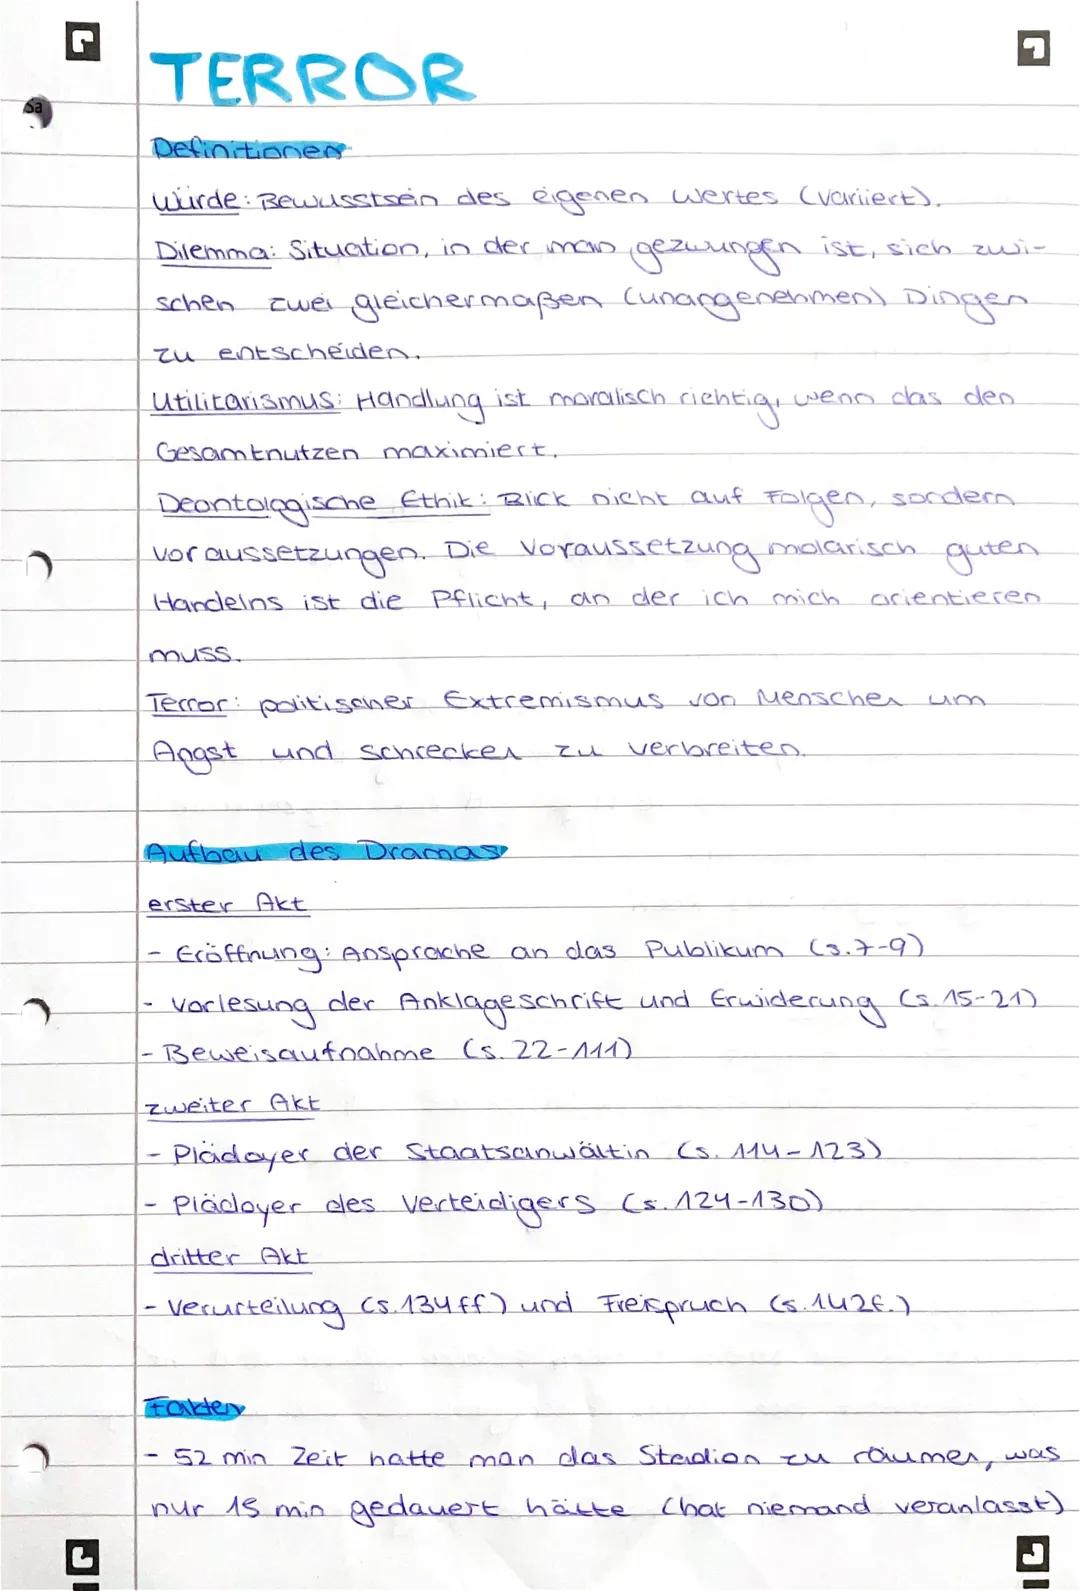 TERROR
Sa
Definitionen
Würde: Bewusstsein des eigenen Wertes (variiert).
Dilemma: Situation, in der man gezwungen ist, sich zwi-
schen zwei gleichermaßen (unangenehmen) Dingen
zu entscheiden.
Utilitarismus: Handlung ist moralisch richtig, wenn das den
Gesamtnutzen maximiert.
Deontologische Ethik: Blick nicht auf Folgen, sondern
Voraussetzungen. Die Voraussetzung molarisch guten
Handelns ist die Pflicht, an der ich mich orientieren
muss.
Terror: politischer Extremismus von Menschen um
Angst und Schrecken zu verbreiten.
Aufbau des Dramas
erster Akt
- Eröffnung: Ansprache an das Publikum (S.7-9)
- Vorlesung der Anklageschrift und Erwiderung (S.15-21)
- Beweisaufnahme (S. 22-111)
zweiter Akt
- Plädoyer der Staatsanwältin (S. 114-123)
- Plädoyer des Verteidigers (S. 124-130)
dritter Akt
- Verurteilung (S.134ff) und Freispruch (S.142f.)
Fakten
- 52 min Zeit hatte man das Stadion zu räumen, was
nur 15 min gedauert hätte (hat niemand veranlasst)